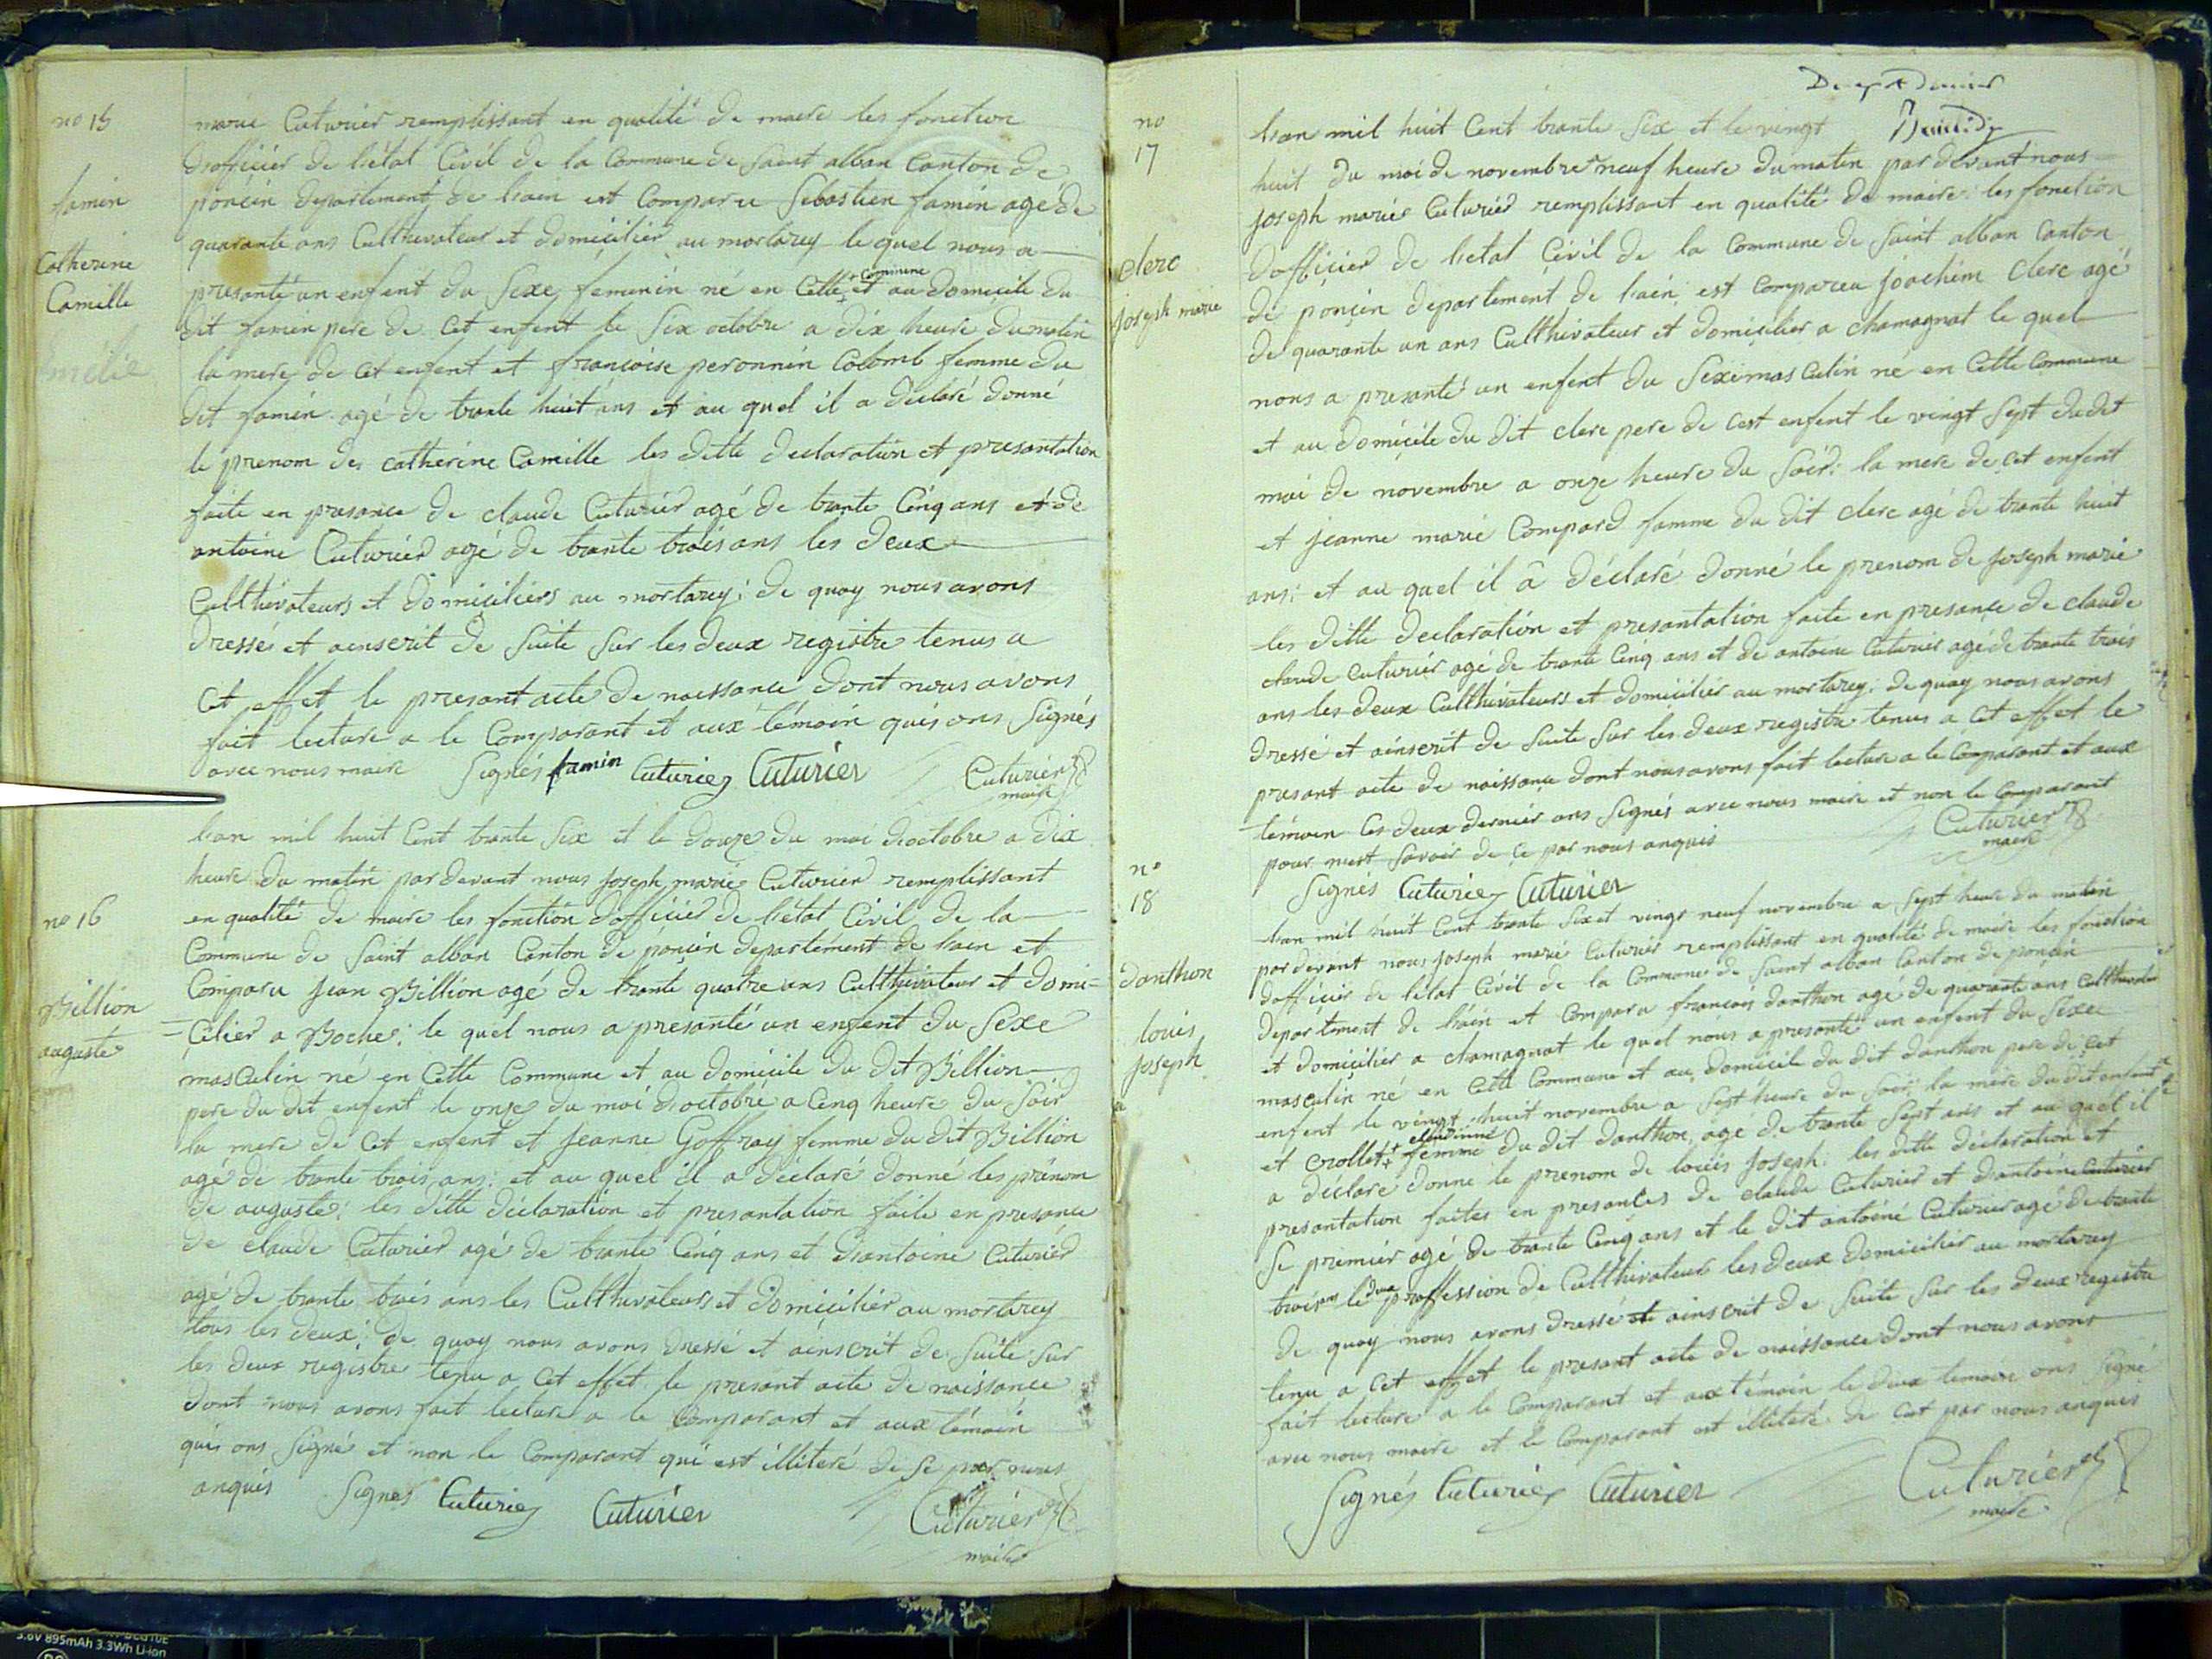 no 15
famin
Catherine
Camille
marie Cuturier remplissant en qualité de maere les fonction
d'officier de l'état Civil de la Commune de Saint alban Canton de
poncin departement de l'ain est Comparu Sébastien famin agé de
quarante ans Culthivateur et domicilier au mortarey le quel nous a
presanté un enfent du Sexe femenin né en Cette + Commune et au domicile du
dit famin pere de Cet enfent le Six octobre a dix heure du matin
la mere de Cet enfent et francoise peronnin Colomb femme du
dit famin agé de trante huit ans et au quel il a déclaré donné
le prenom des catherine Camille les ditte declaration et presantation
faite en presance de claude Cuturier agé de trante Cinq ans et de
antoine Cuturier agé de trante trois ans les deux
Culthivateurs et domiciliers au mortarey; de quoy nous avons
dressé et ainscrit de Suite Sur les deux registre tenus a
Cet effet le presant acte de naissance dont nous avons
fait lecture a le Comparant et aux témoin quis ons Signés
avec nous maire Signés famin Cuturier Cuturier Cuturier
maire
no 16
Billion
auguste
l'an mil huit Cent trante Six et le douze du moi d'octobre a dix
heure du matin par devant nous joseph marie Cuturier remplissant
en qualité de maire les fonction d'officier de l'état Civil de la
Commune de Saint alban Canton de poncin departement de l'ain et
Comparu jean Billion agé de trante quatre ans Culthivateur et domi=
=Cilier a Boche; le quel nous a presanté un enfent du Sexe
masculin né en Cette Commune et au domicile du dit Billion
pere du dit enfent le onze du moi d'octobre a Cinq heure du Soir
la mere de Cet enfent et jeanne Goffray femme du dit Billion
agé de trante trois ans; et au quel il a déclaré donné les prénom
de auguste; les ditte déclaration et presantation faite en presance
de claude Cuturier agé de trante Cinq ans et d'antoine Cuturier
agé de trante trois ans les Culthivateurs et domicilier au mortarey
tous les deux; de quoy nous avons dressé et ainscrit de Suite Sur
les deux registre tenu a Cet effet le presant acte de naissance
dont nous avons fait lecture a le Comparant et aux témoin
quis ons Signé et non le Comparant qui est illiteré de Se par nous
anquis Signés Cuturier Cuturier Cuturier
maire
no
17
clerc
joseph marie
l'an mil huit Cent trante Six et le vingt
huit du moi de novembre neuf heure du matin par devant nous
joseph marie Cuturier remplissant en qualité de maere les fonction
d'officier de l'etat Civil de la Commune de Saint alban Canton
de poncin departement de l'ain est Compareu joachim clerc agé
de quarante un ans Culthivateur et domicilier a chamagnat le quel
nous a presanté un enfent du Sexe masculin né en Cette Commune
et au domicile du dit clerc pere de Cest enfent le vingt Sept du dit
moi de novembre a onze heure du Soir; la mere de Cet enfent
et jeanne marie Compard famme du dit clerc agé de trante huit
ans; et au quel il â déclaré donné le prenom de joseph marie
les ditte declaration et presantation faite en presance de claude
claude Cuturier agé de trante Cinq ans et de antoine Cuturier agé de trante trois
ans les deux Culthivateurs et domicilier au mortarey; de quoy nous avons
dressé et ainscrit de Suite Sur les deux registre tenus a Cet effet le
presant acte de naissance dont nous avons fait lecture a le Comparant et aux
témoin les deux dernier ons Signés avec nous maire et non le Comparant
pour n'est Savoir de Ce par nous anquis Cuturier
maire
Signés Cuturier Cuturier
no
18
danthon
louis
joseph
l'an mil huit Cent trante Six et vingt neuf novembre a Sept heure du matin
par devant nous joseph marie Cuturier remplissant en qualité de maire les fonction
d'officier de l'état Civil de la Commune de Saint alban Canton de poncin
departement de l'ain et Comparu francois danthon agé de quarante ans Culthivateur
et domicilier a chamagnat le quel nous a presanté un enfent du Sexe
masculin né en Cette Commune et au domicile du dit danthon pere de Cet
enfent le vingt huit novembre a Sept heure du Soir la mere du dit enfent
et Crollet + claudinne femme du dit danthon, age de trante Sept ans et au quel il
a déclaré donné le prenom de louis joseph; les ditte déclaration et
presantation faites en presances de claude Cuturier et d'antoine Cuturier
Se premier agé de trante Cinq ans et le dit antoine Cuturier agé de trante
trois ans le deux proffession de Culthivateur les deux domicilier au mortarey
de quoy nous avons dressé et ainscrit de Suite Sur les deux registre
tenu a Cet effet le presant acte de naissance dont nous avons
fait lecture a le Comparant et aux témoin le deux temoin ons Signé
avec nous maire et le Comparant est illiteré de Cet par nous anquis
Signés Cuturier Cuturier Cuturier
maire
3.6V 895mAh 3.3Wh Li-ion